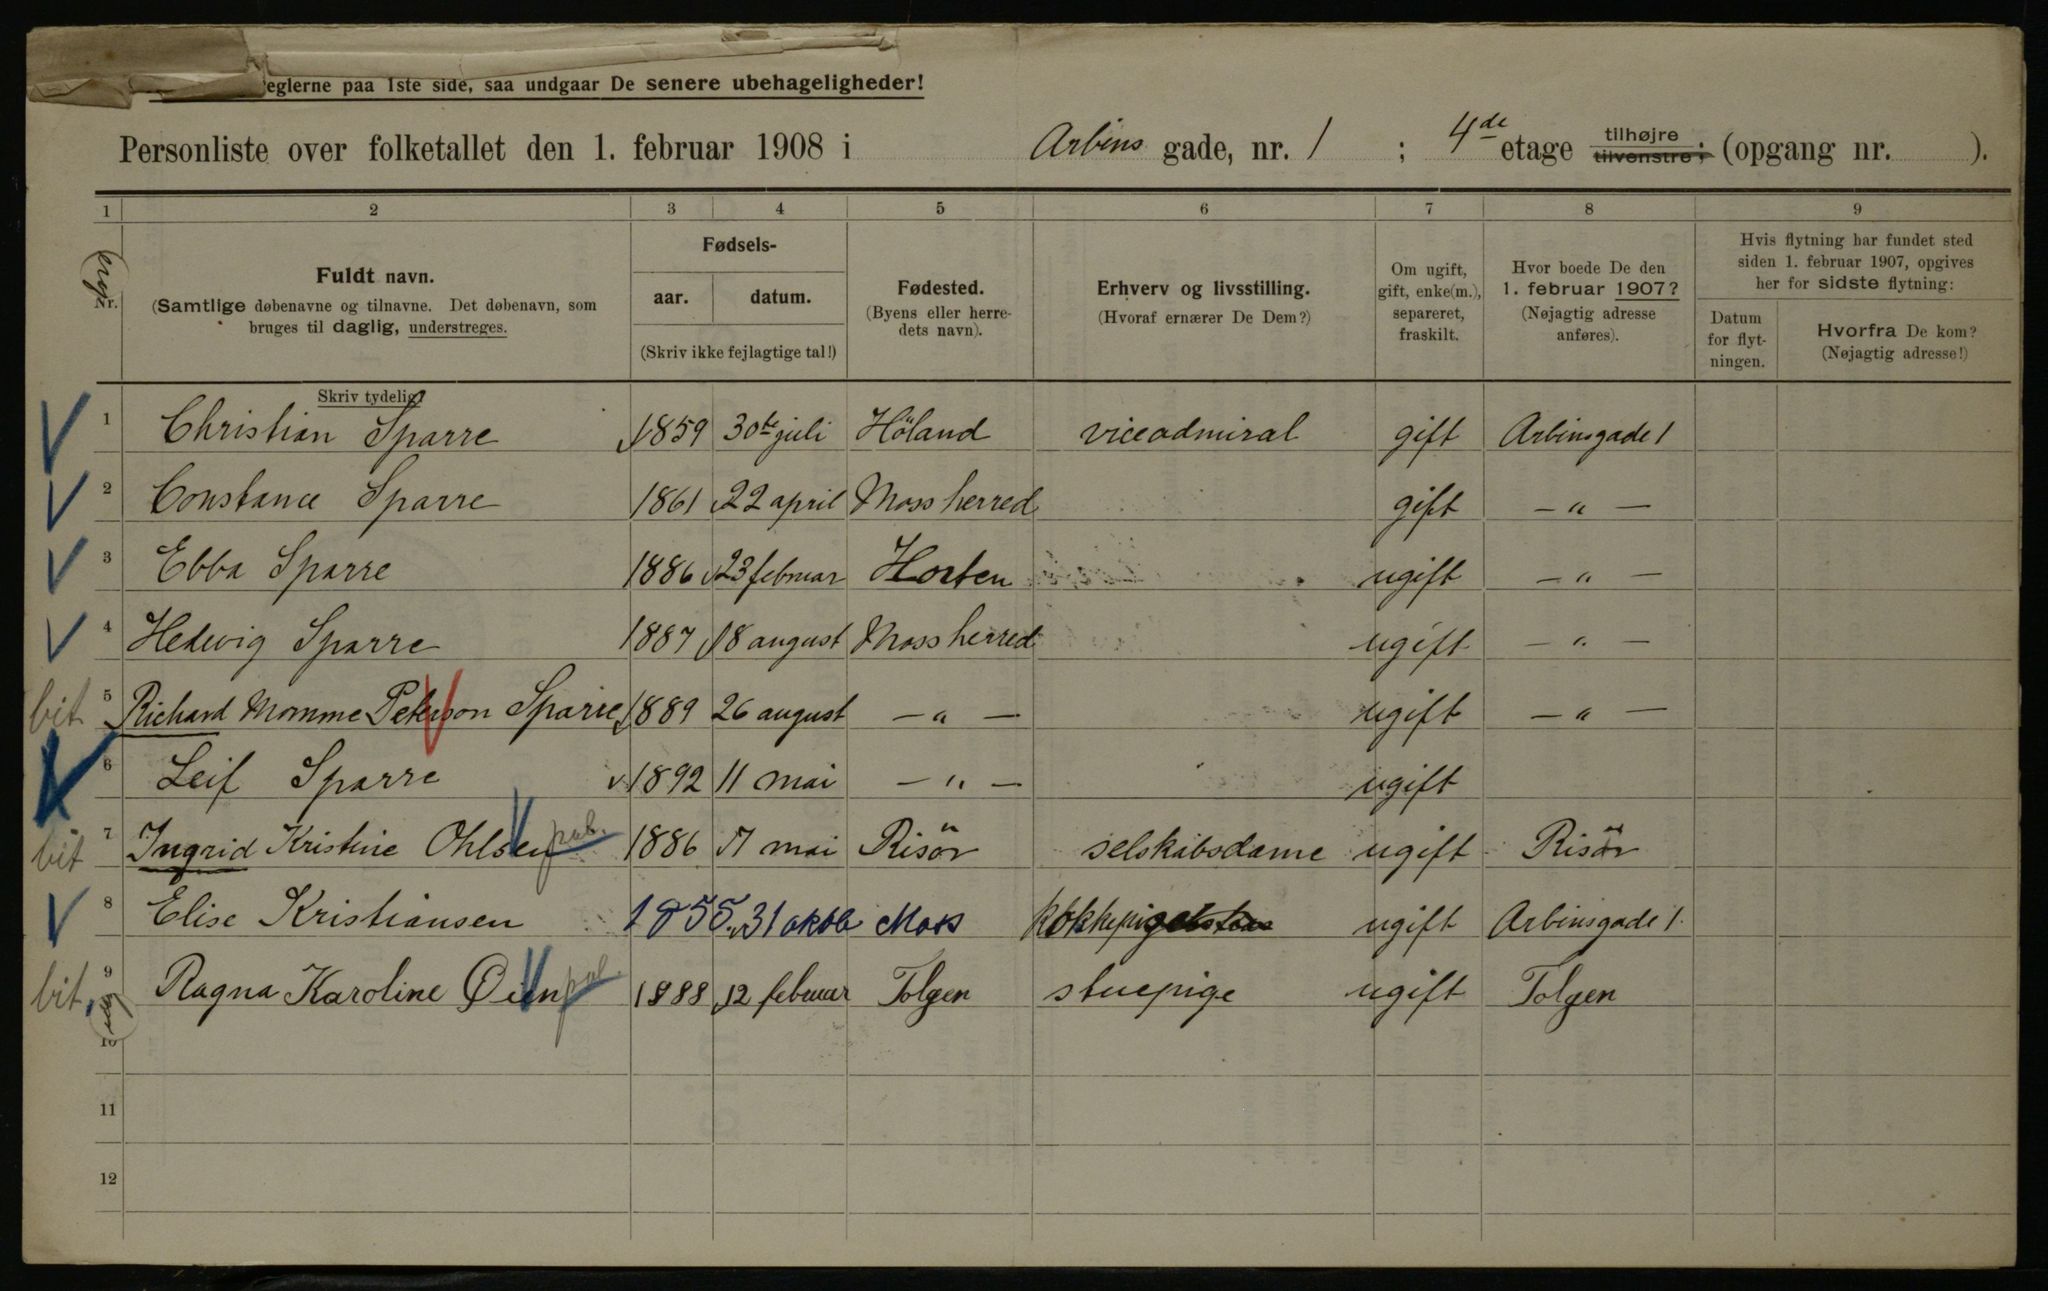 reglerne paa 1ste side, saa undgaar De senere ubehageligheder!
Personliste over folketallet den 1. februar 1908 i Arbins gade, nr. 1 ; 4de etage tilhøjre tilvenstre; (opgang nr. ).
1 2 3 4 5 6 7 8 9
Nr.
Fuldt navn.
(Samtlige døbenavne og tilnavne. Det døbenavn, som
bruges til daglig, understreges.
Skriv tydelig!
Fødsels-
aar. datum.
(Skriv ikke fejlagtige tal!)
Fødested.
(Byens eller herre-
dets navn).
Erhverv og livsstilling.
(Hvoraf ernærer De Dem?)
Om ugift,
gift, enke(m.),
separeret,
fraskilt.
Hvor boede De den
1. februar 1907?
(Nøjagtig adresse
anføres).
Hvis flytning har fundet sted
siden 1. februar 1907, opgives
her for sidste flytning:
Datum
for flyt-
ningen.
Hvorfra De kom?
(Nøjagtig adresse!)
1 Christian Sparre 1859 30te juli Höland viceadmiral gift Arbinsgade 1
2 Constance Sparre 1861 22 april Moss herred gift — " —
3 Ebba Sparre 1886 23 februar Horten ugift — " —
4 Hedevig Sparre 1887 18 august Moss herred ugift — " —
bit 5 Richard Momme Peterson Sparre 1889 26 august — " — ugift — " —
6 Leif Sparre 1892 11 mai — " — ugift
bit 7 Ingrid Kristine Ohlsen pol. 1886 7 mai Risör selskabsdame ugift Risör
8 Elise Kristiansen 1855 31 oktb Moss kokkepige ugift Arbinsgade 1.
bit. 9 Ragna Karoline Öien pol. 1888 12 februar Tolgen stuepige ugift Tolgen
10
11
12